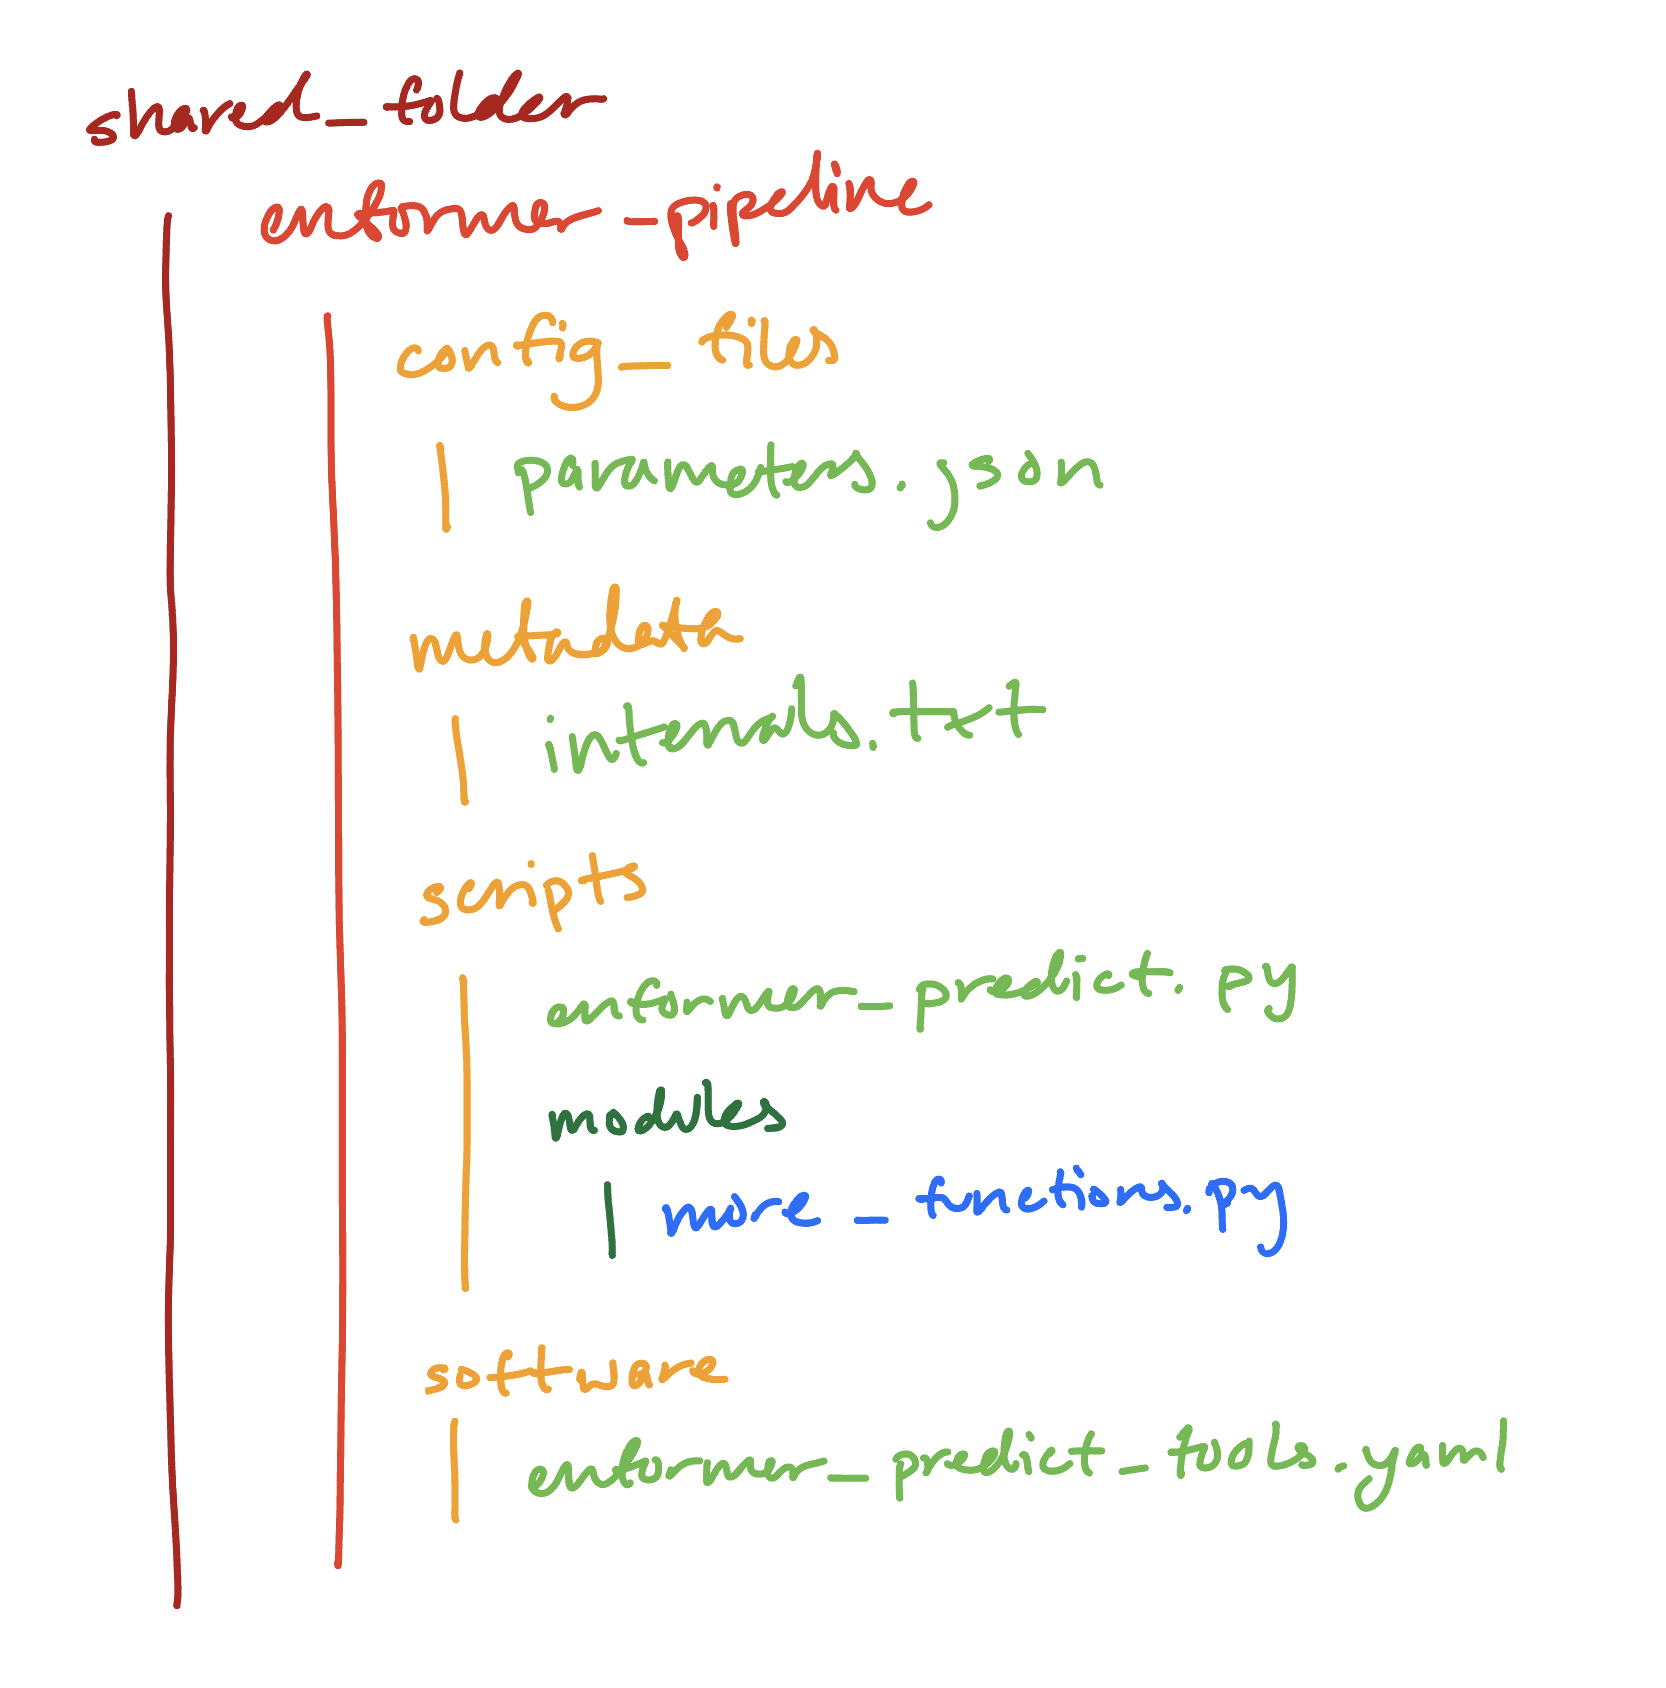 shared_folder
enformer_pipeline
config_files
parameters.json
metadata
intervals.txt
scripts
enformer_predict.py
modules
more_functions.py
software
enformer_predict_tools.yaml